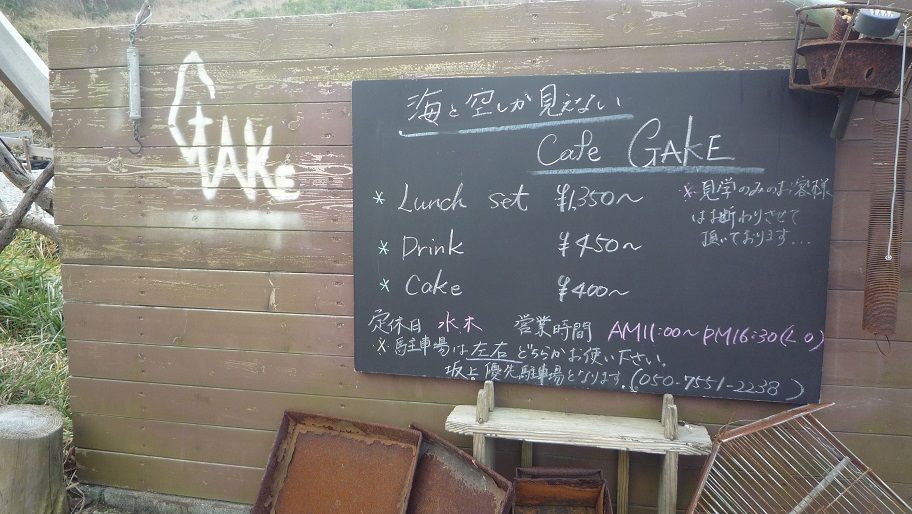 GAKe
海と空しか見えない
Cafe GAKE
* Lunch set ¥1,350〜
* Drink ¥450〜
* Cake ¥400〜
※見学のみのお客様
はお断わりさせて
頂いております...
定休日 水木 営業時間 AM11:00〜PM16:30(L O)
※駐車場は左右どちらかお使い下さい。
坂上優先駐車場となります。(050-7551-2238)